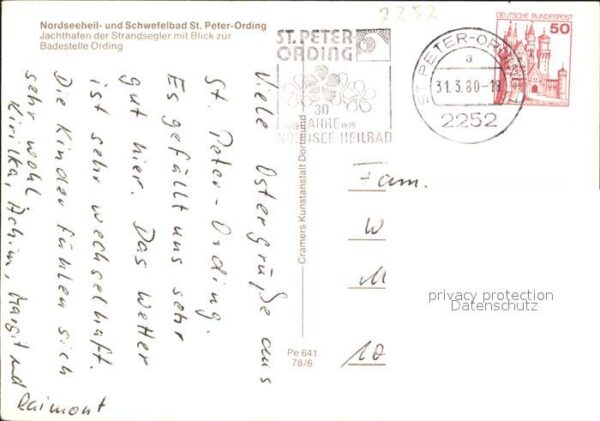 Nordseeheil- und Schwefelbad St. Peter-Ording
Jachthafen der Strandsegler mit Blick zur
Badestelle Ording
2252
ST. PETER
ORDING
30
JAHRE
NORDSEE-HEILBAD
ST. PETER-ORDING 1
a
31.3.80-18
2252
DEUTSCHE BUNDESPOST
50
Viele Ostergrüße aus
St. Peter-Ording.
Es gefällt uns sehr
gut hier. Das Wetter
ist sehr wechselhaft.
Die Kinder fühlen sich
sehr wohl.
Achim, Margit und
Raimont
Cramers Kunstanstalt Dortmund
Pe 641
78/6
Fam.
W
M
10
privacy protection
Datenschutz